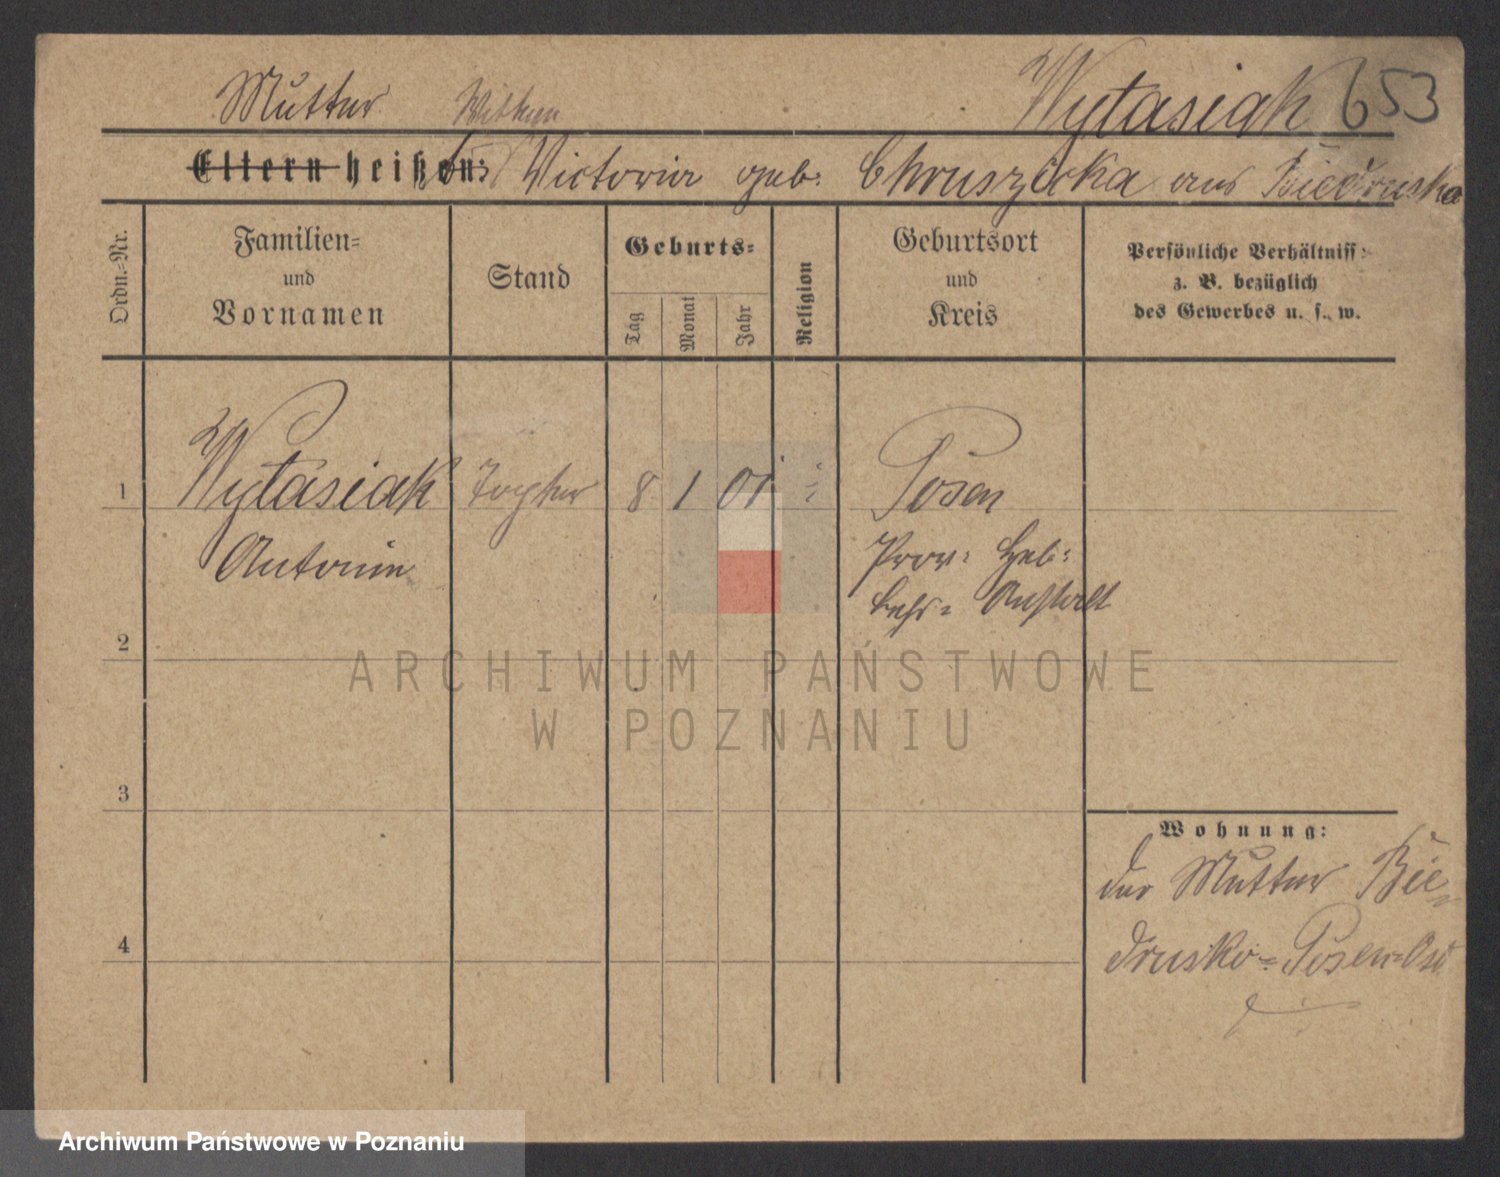 Mutter Witwe Wytasiak 653
Eltern heißen: Victoria geb. Chruszicka aus Biedrusko
Ordn.-Nr.
Familien-
und
Vornamen
Stand
Geburts-
Tag
Monat
Jahr
Religion
Geburtsort
und
Kreis
Persönliche Verhältniss
z. B. bezüglich
des Gewerbes u. s. w.
1 Wytasiak 8 1 01 Posen
Antonin
Prov. Heb.
Lehr- Anstalt
2
ARCHIWUM PAŃSTWOWE
W POZNANIU
3
Wohnung:
der Mutter Bie-
drusko-Posen-Ost
4
Archiwum Państwowe w Poznaniu